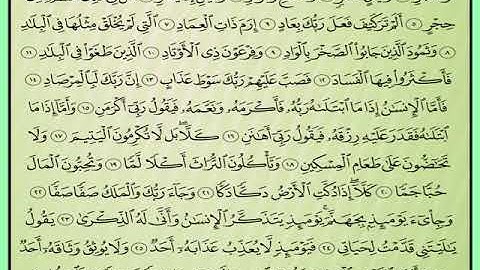 حِجْرٍ ٥ أَلَمْ تَرَ كَيْفَ فَعَلَ رَبُّكَ بِعَادٍ ٦ إِرَمَ ذَاتِ ٱلْعِمَادِ ٧ ٱلَّتِي لَمْ يُخْلَقْ مِثْلُهَا فِي ٱلْبِلَٰدِ
٨ وَثَمُودَ ٱلَّذِينَ جَابُوا۟ ٱلصَّخْرَ بِٱلْوَادِ ٩ وَفِرْعَوْنَ ذِي ٱلْأَوْتَادِ ١٠ ٱلَّذِينَ طَغَوْا۟ فِي ٱلْبِلَٰدِ ١١
فَأَكْثَرُوا۟ فِيهَا ٱلْفَسَادَ ١٢ فَصَبَّ عَلَيْهِمْ رَبُّكَ سَوْطَ عَذَابٍ ١٣ إِنَّ رَبَّكَ لَبِٱلْمِرْصَادِ ١٤
فَأَمَّا ٱلْإِنسَٰنُ إِذَا مَا ٱبْتَلَىٰهُ رَبُّهُۥ فَأَكْرَمَهُۥ وَنَعَّمَهُۥ فَيَقُولُ رَبِّي أَكْرَمَنِ ١٥ وَأَمَّآ إِذَا مَا
ٱبْتَلَىٰهُ فَقَدَرَ عَلَيْهِ رِزْقَهُۥ فَيَقُولُ رَبِّي أَهَٰنَنِ ١٦ كَلَّا ۖ بَل لَّا تُكْرِمُونَ ٱلْيَتِيمَ ١٧ وَلَا
تَحَٰٓضُّونَ عَلَىٰ طَعَامِ ٱلْمِسْكِينِ ١٨ وَتَأْكُلُونَ ٱلتُّرَاثَ أَكْلًا لَّمًّا ١٩ وَتُحِبُّونَ ٱلْمَالَ
حُبًّا جَمًّا ٢٠ كَلَّآ إِذَا دُكَّتِ ٱلْأَرْضُ دَكًّا دَكًّا ٢١ وَجَآءَ رَبُّكَ وَٱلْمَلَكُ صَفًّا صَفًّا ٢٢
وَجِا۟يٓءَ يَوْمَئِذٍۭ بِجَهَنَّمَ ۚ يَوْمَئِذٍ يَتَذَكَّرُ ٱلْإِنسَٰنُ وَأَنَّىٰ لَهُ ٱلذِّكْرَىٰ ٢٣ يَقُولُ
يَٰلَيْتَنِي قَدَّمْتُ لِحَيَاتِي ٢٤ فَيَوْمَئِذٍ لَّا يُعَذِّبُ عَذَابَهُۥٓ أَحَدٌ ٢٥ وَلَا يُوثِقُ وَثَاقَهُۥٓ أَحَدٌ